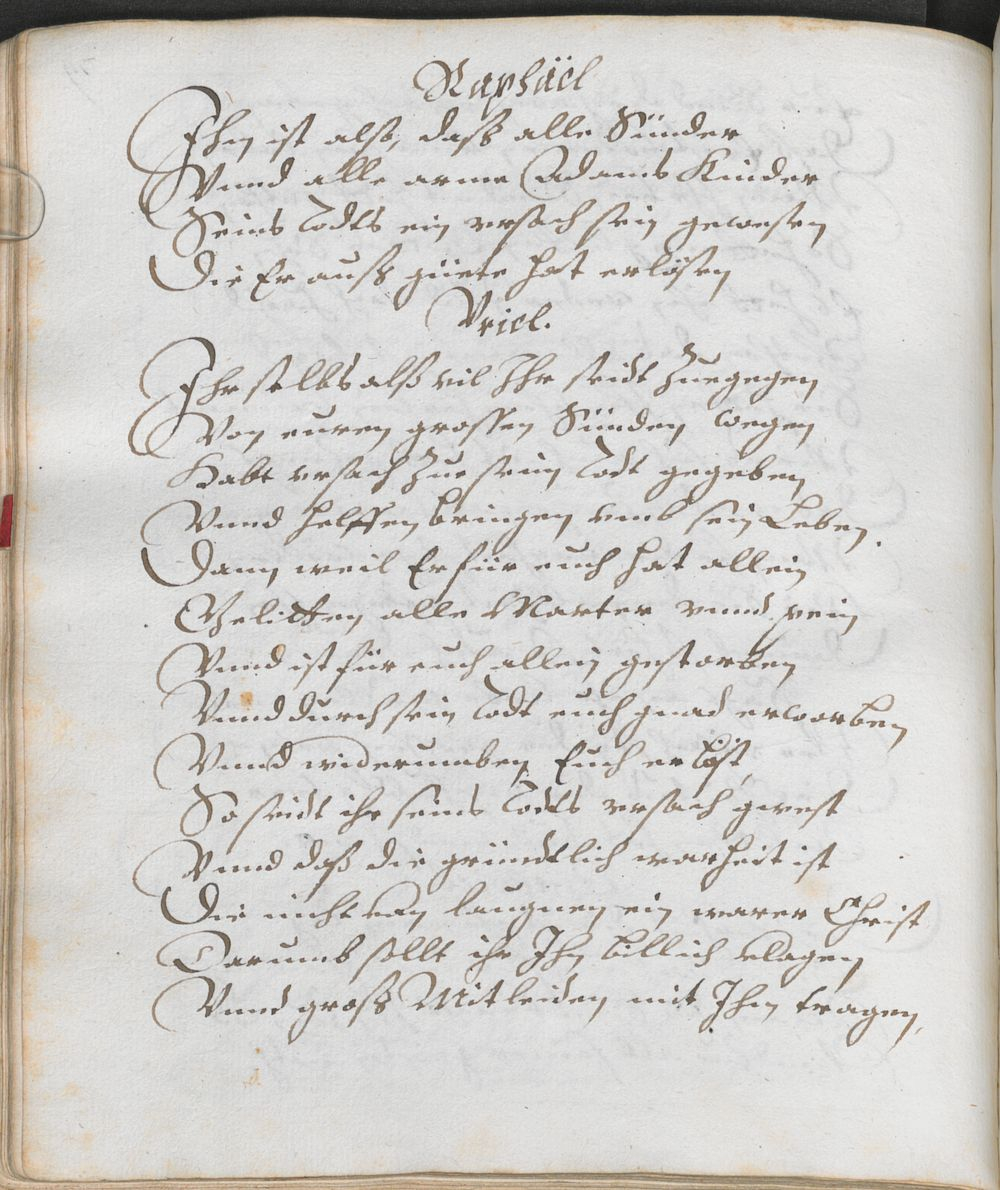 Raphäel
Ihm ist also, daß alle Sünder
Vnnd alle arme Adams Kinder
Seins Todts ein vrsach sein gewesen
Die Er auß güete hat erlösen
Vriel.
Ihr selbs alß vil Ihr seidt Zuegegen
Von euren grossen Sünden wegen
Habt vrsach Zue seim Todt gegeben
Vnnd helffen bringen vmb sein Leben.
Dann weil Er für euch hat allein
Gelitten alle Marter vnnd pein
Vnnd ist für euch allein gestorben
Vnnd durch sein Todt euch gnad erworben
Vnnd widerumben Euch erlöst,
So seidt ihr seins Todts vrsach gwest
Vnnd daß die gründtlich warheit ist
Die nicht kan laugnen ein warer Christ
Darumb sollt ihr Ihn billich klagen
Vnnd groß Mitleiden mit Ihm tragen,